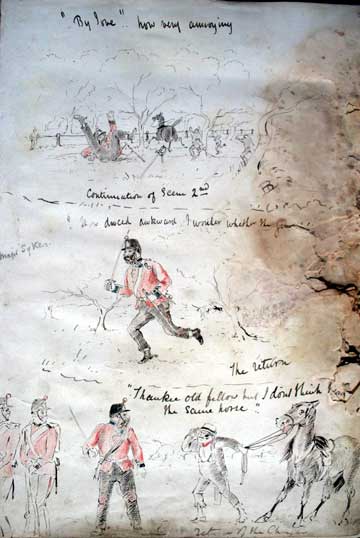 "By Jove".. how very annoying
Continuation of Scene 2nd
How deuced awkward. I wonder whether the
The return
"Thankee old fellow but I don't think
the same horse."
return of the